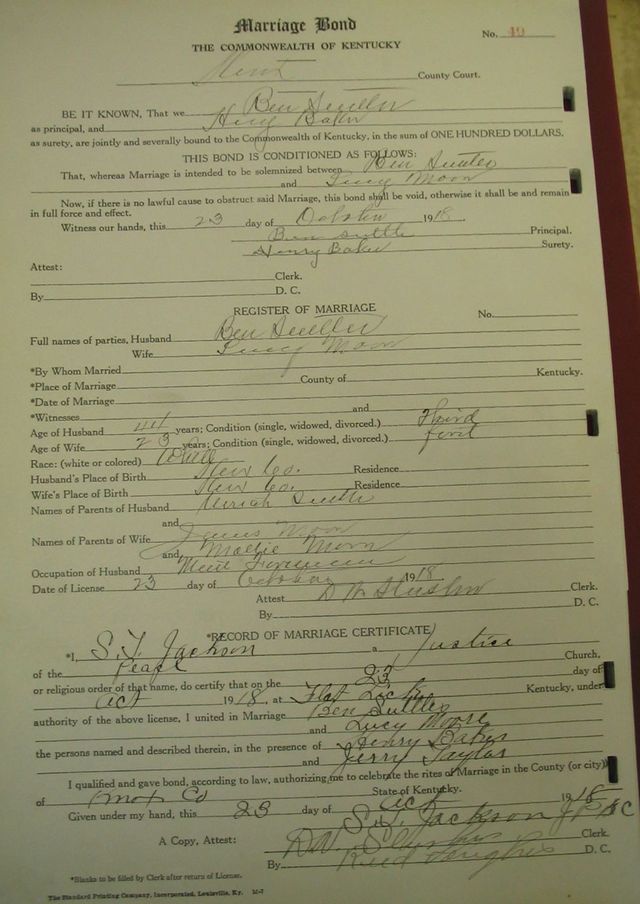 Marriage Bond
No. 49
THE COMMONWEALTH OF KENTUCKY
County Court.
BE IT KNOWN, That we Ben
as principal, and Baker
as surety, are jointly and severally bound to the Commonwealth of Kentucky, in the sum of ONE HUNDRED DOLLARS.
THIS BOND IS CONDITIONED AS FOLLOWS:
That, whereas Marriage is intended to be solemnized between Ben
and Lucy Moon
Now, if there is no lawful cause to obstruct said Marriage, this bond shall be void, otherwise it shall be and remain
in full force and effect.
Witness our hands, this 23 day of 1918.
Ben Suttle Principal.
Henry Baker Surety.
Attest:
Clerk.
By D. C.
REGISTER OF MARRIAGE
No.
Full names of parties, Husband Ben
Wife Lucy Moon
*By Whom Married
*Place of Marriage County of Kentucky.
*Date of Marriage
*Witnesses and
Age of Husband 44 years; Condition (single, widowed, divorced.) Third
Age of Wife 23 years; Condition (single, widowed, divorced.) first
Race: (white or colored) White
Husband's Place of Birth Co. Residence
Wife's Place of Birth Co. Residence
Names of Parents of Husband
and
Names of Parents of Wife James Moon
and Mollie Moon
Occupation of Husband Mine
Date of License 23 day of 1918
Attest Clerk.
By D. C.
*RECORD OF MARRIAGE CERTIFICATE
*I, S. J. Jackson a Justice
of the Peace Church,
or religious order of that name, do certify that on the 23 day of
Oct 1918, at Flat Lick Kentucky, under
authority of the above license, I united in Marriage Ben Suttles
and Lucy Moore
the persons named and described therein, in the presence of Henry Baker
and Jerry Taylor
I qualified and gave bond, according to law, authorizing me to celebrate the rites of Marriage in the County (or city)
of Knox Co State of Kentucky.
Given under my hand, this 23 day of Oct 1918
S. J. Jackson J P K C
A Copy, Attest: Clerk.
By D. C.
*Blanks to be filled by Clerk after return of License.
The Standard Printing Company, Incorporated, Louisville, Ky.